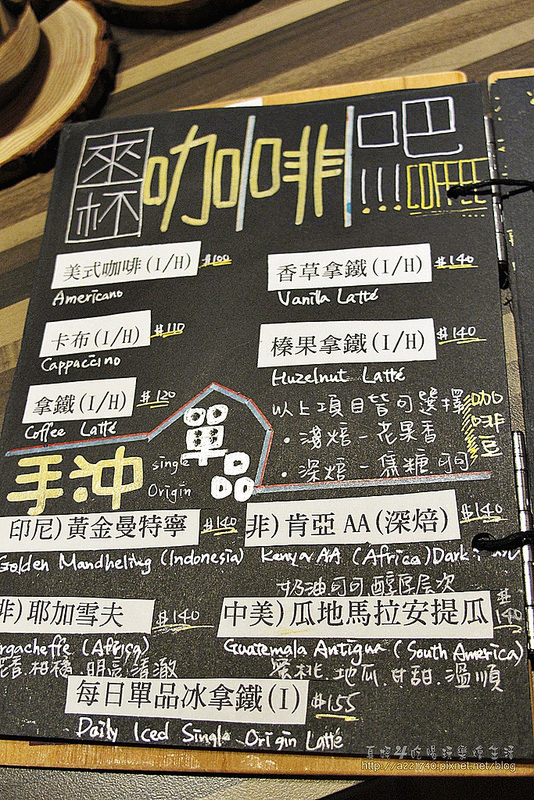 來杯咖啡吧!!! COFFEE
美式咖啡(I/H) $100
Americano
香草拿鐵(I/H) $140
Vanilla Latté
卡布(I/H) $110
Cappaccino
榛果拿鐵(I/H) $140
Huzelnut Latté
拿鐵(I/H) $120
Coffee Latté
以上項目皆可選擇 咖啡豆
・淺焙-花果香
・深焙-焦糖可可
手沖 單品
single
Origin
印尼)黃金曼特寧 $140
Golden Mandheling (Indonesia)
非)肯亞AA(深焙) $140
Kenya AA (Africa) Dark
奶油可可醇厚层次
非)耶加雪夫 $140
rgacheffe (Africa)
花香.柑橘.明亮.清澈
中美)瓜地馬拉安提瓜 $140
Guatemala Antigua (South America)
蜜桃.地瓜.甘甜.溫順
每日單品冰拿鐵(I) $155
Daily Iced Single Origin Latté
http://a221740.pixnet.net/blog